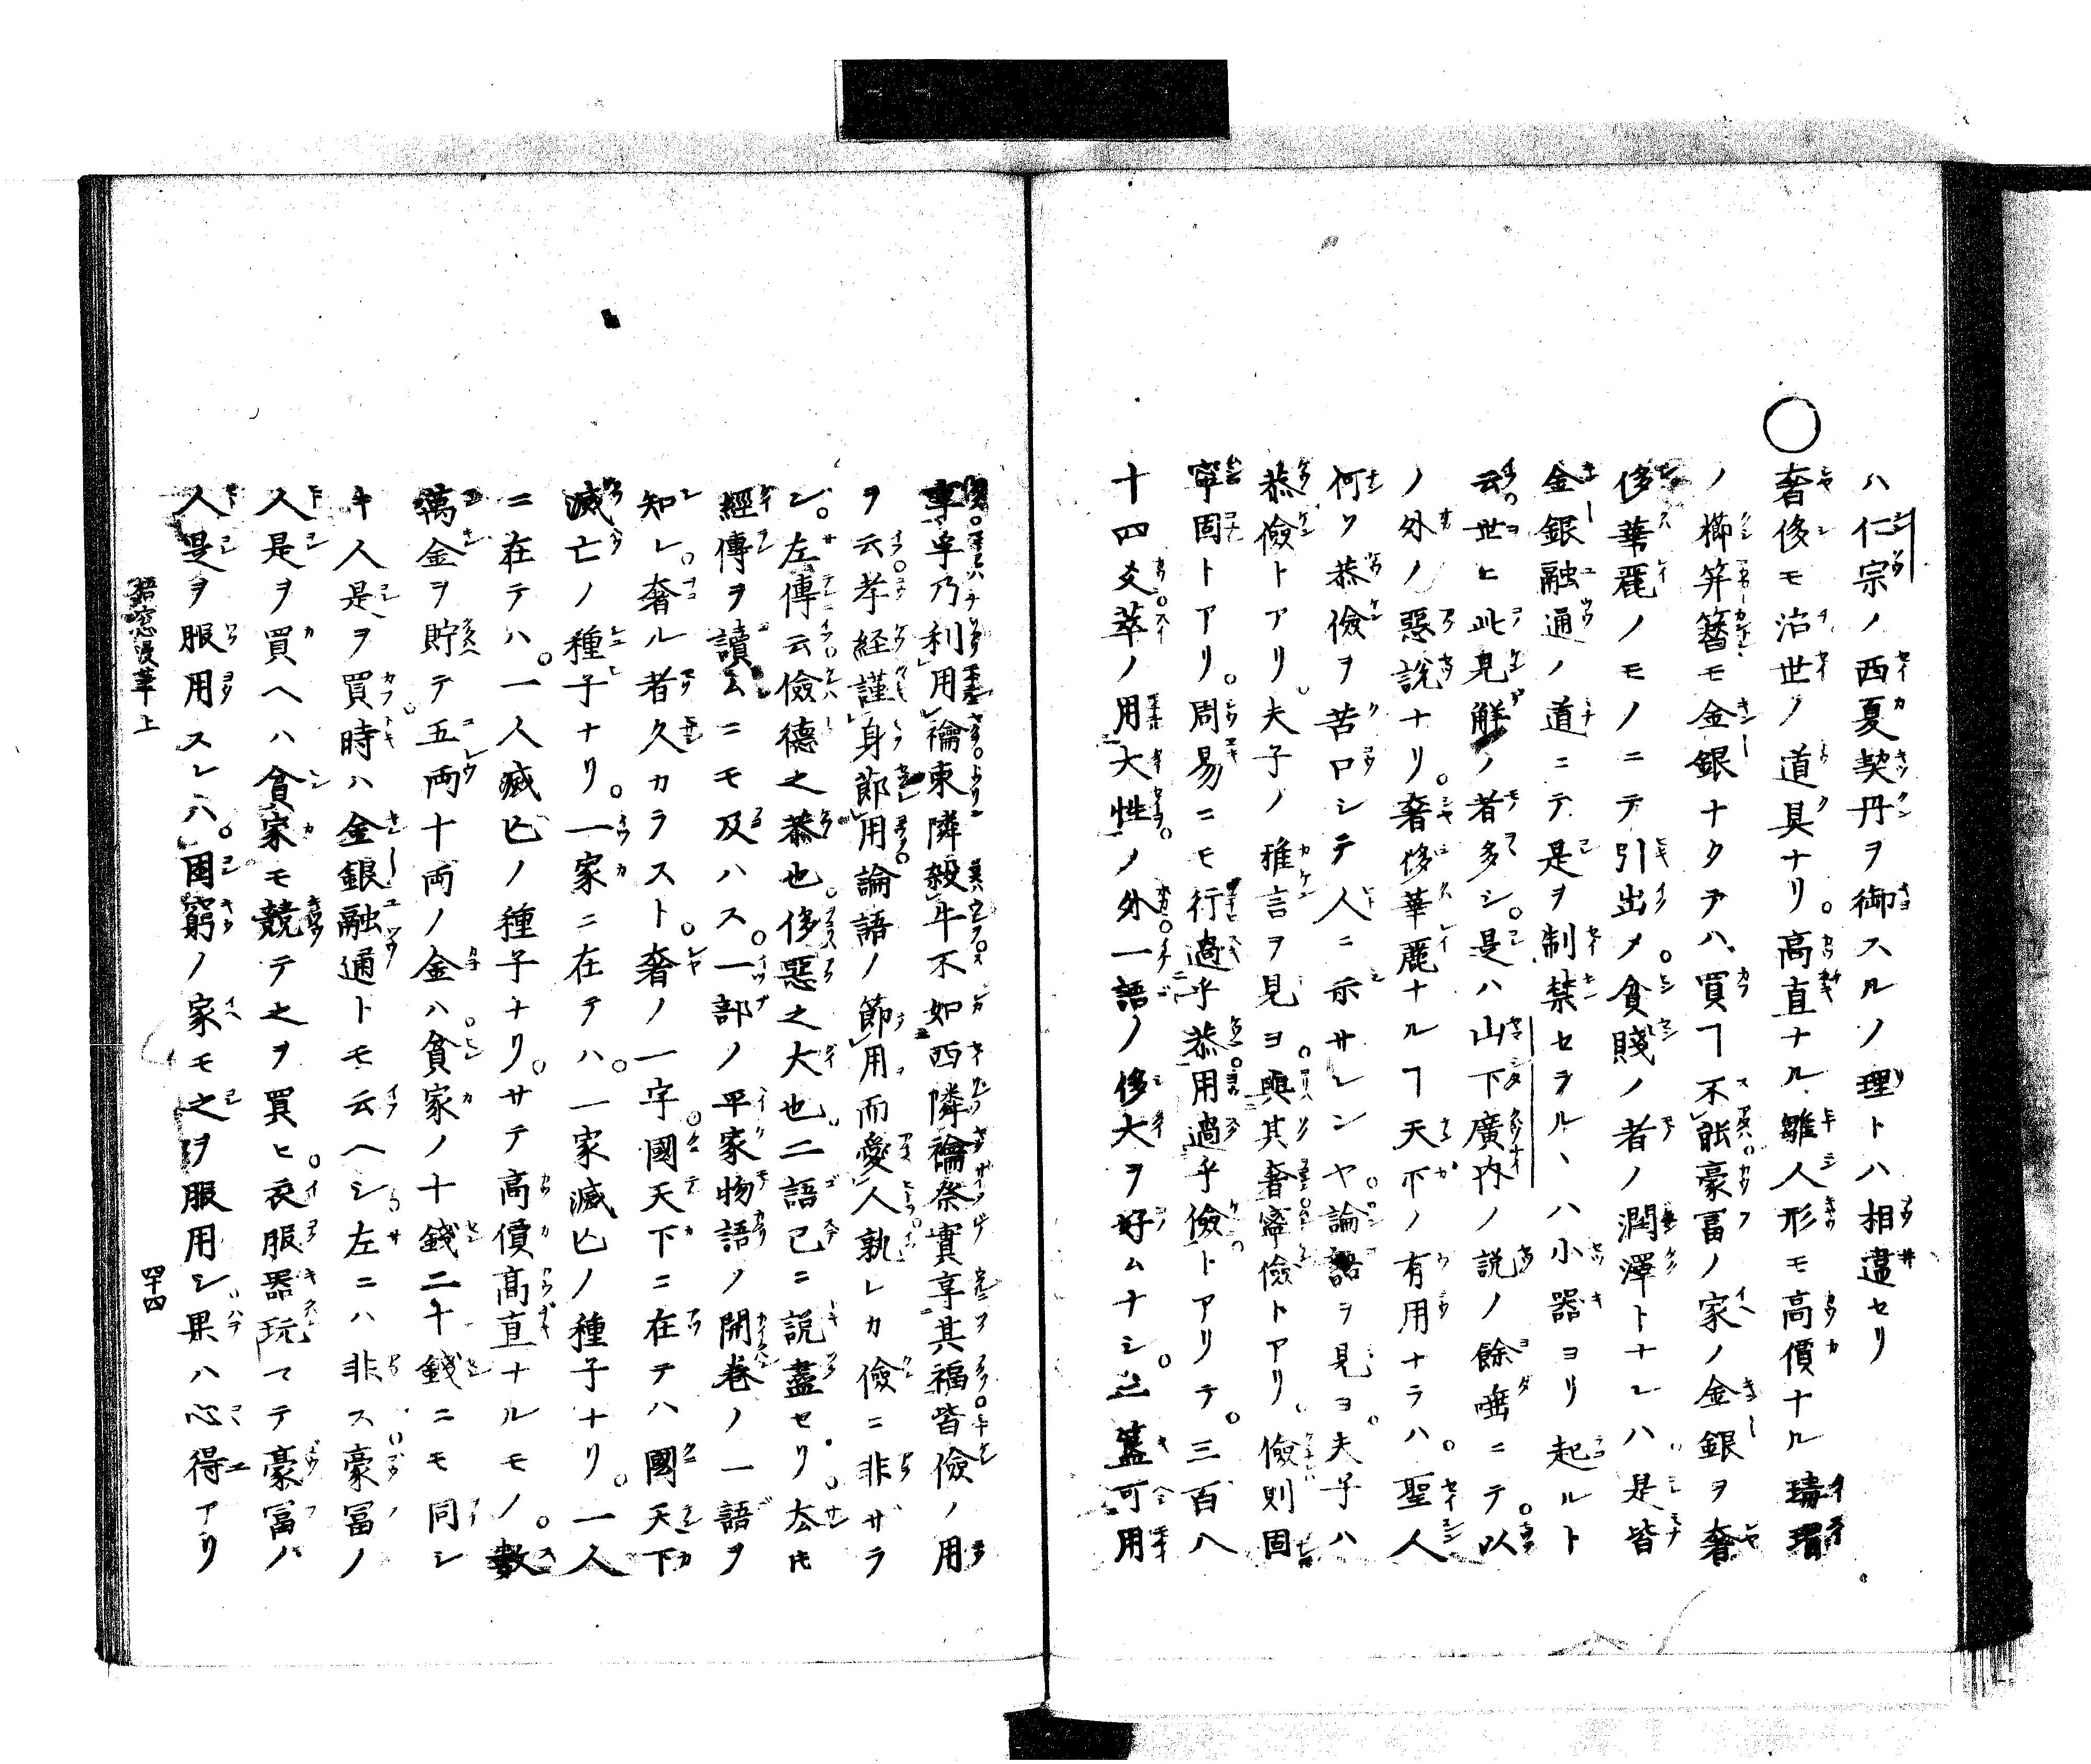 ハ仁宗ノ西夏契丹ヲ御スルノ理トハ相違セリ
○奢侈モ治世ノ道具ナリ。高直ナル雛人形モ高價ナル瑇瑁
ノ櫛笄簪モ金銀ナクテハ買フヿ不能豪富ノ家ノ金銀ヲ奢
侈華麗ノモノニテ引出メ。貧賤ノ者ノ潤澤トナレハ是皆
金銀融通ノ道ニテ是ヲ制禁セラルヽハ小器ヨリ起ルト
云。世ヒ此見解ノ者多シ。是ハ山下廣内ノ説ノ餘唾ニテ。以
ノ外ノ惡説ナリ。奢侈華麗ナルヿ天下ノ有用ナラハ。聖人
何ク恭儉ヲ苦ロシテ人ニ示サレンヤ。論語ヲ見ヨ。夫子ハ
恭儉トアリ。夫子ノ雅言ヲ見ヨ。與其奢寧儉トアリ。儉則固
寧固トアリ。周易ニモ行過乎恭用過乎儉トアリテ。三百八
十四爻萃ノ用大牲ノ外一語ノ侈大ヲ好ムナシ。二簋可用
享孚乃利用禴東隣殺牛不如西隣禴祭實享其福皆儉ノ用
ヲ云孝経謹身節用論語ノ節用而愛人孰レカ儉ニ非ザラ
シ。左傳云儉德之恭也侈惡之大也。二語已ニ説盡セリ。
經傳ヲ讀ムニモ及ハス。一部ノ平家物語ノ開巻ノ一語ヲ
知レ。奢ル者久カラスト。奢ノ一字國天下ニ在テハ國天下
滅亡ノ種子ナリ。一家ニ在テハ。一家滅亡ノ種子ナリ。一人
ニ在テハ。一人滅亡ノ種子ナリ。サテ高價高直ナルモノ。數
萬金ヲ貯テ五両十両ノ金ハ貧家ノ十錢二十錢ニモ同シ
キ人是ヲ買時ハ金銀融通トモ云ヘシ左ニハ非ス豪冨ノ
人是ヲ買ヘハ貧家モ競テ之ヲ買ヒ。衣服器玩マテ豪冨ノ
人是ヲ服用スレハ。困窮ノ家モ之ヲ服用シ果ハ心得アリ
梧窓漫筆上
四十四